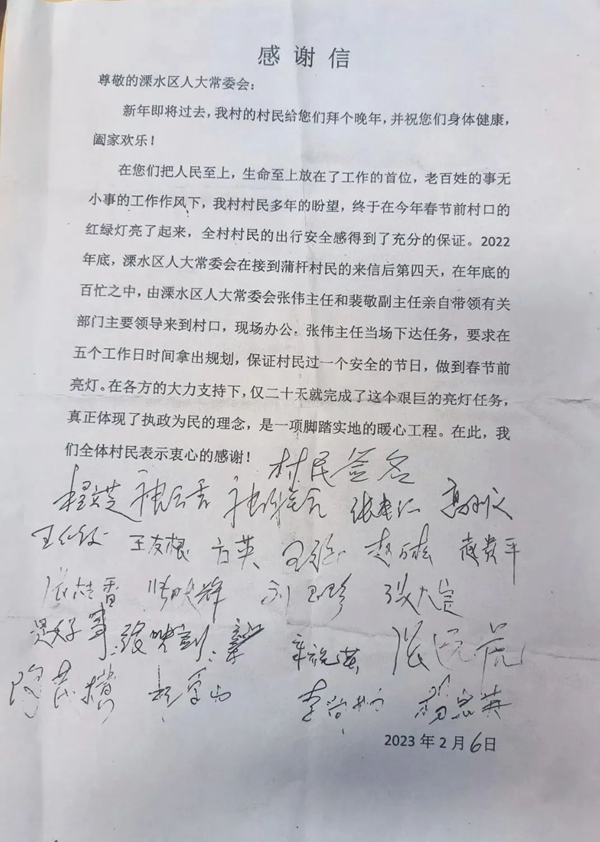 感谢信
尊敬的溧水区人大常委会：
新年即将过去，我村的村民给您们拜个晚年，并祝您们身体健康，
阖家欢乐！
在您们把人民至上，生命至上放在了工作的首位，老百姓的事无
小事的工作作风下，我村村民多年的盼望，终于在今年春节前村口的
红绿灯亮了起来，全村村民的出行安全感得到了充分的保证。2022
年底，溧水区人大常委会在接到蒲杆村民的来信后第四天，在年底的
百忙之中，由溧水区人大常委会张伟主任和裴敬副主任亲自带领有关
部门主要领导来到村口，现场办公。张伟主任当场下达任务，要求在
五个工作日时间拿出规划，保证村民过一个安全的节日，做到春节前
亮灯。在各方的大力支持下，仅二十天就完成了这个艰巨的亮灯任务，
真正体现了执政为民的理念，是一项脚踏实地的暖心工程。在此，我
们全体村民表示衷心的感谢！ 村民签名
王友根 方英
刘玉珍
2023 年 2 月 6 日